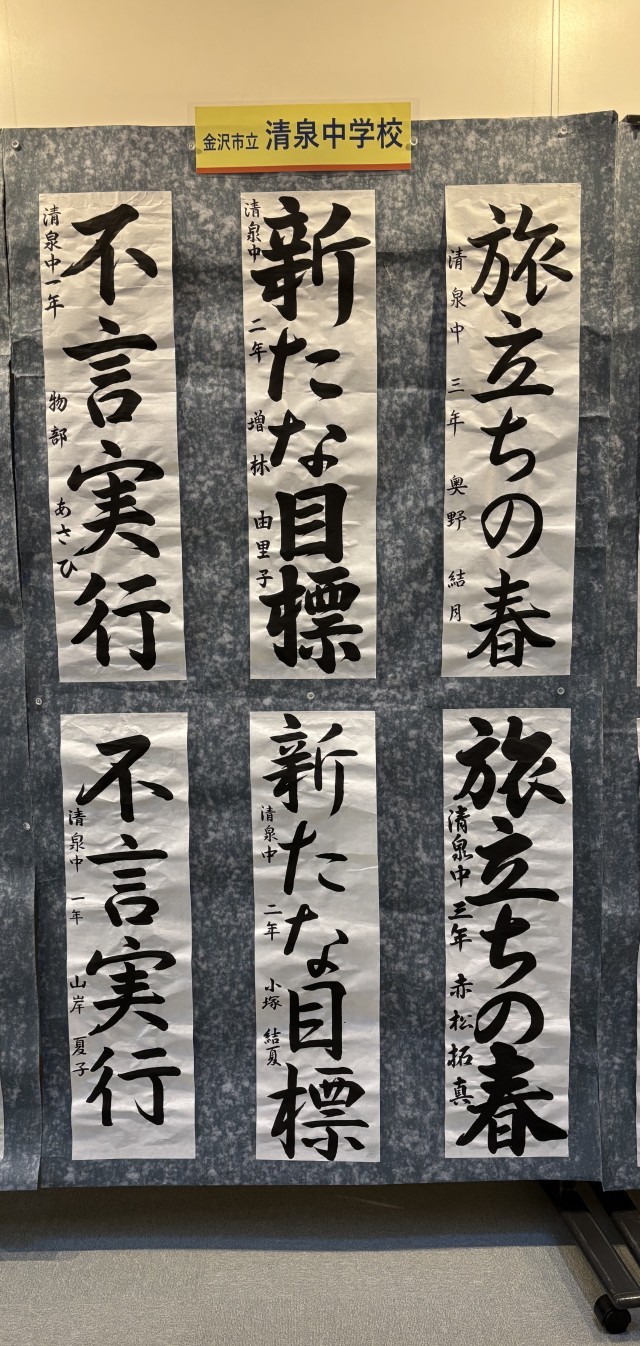 金沢市立 清泉中学校
旅立ちの春
清泉中 三年 奥野 結月
新たな目標
清泉中 二年 増林 由里子
不言実行
清泉中一年 物部 あさひ
旅立ちの春
清泉中 三年 赤松拓真
新たな目標
清泉中 二年 小塚 結夏
不言実行
清泉中 一年 山岸 夏子